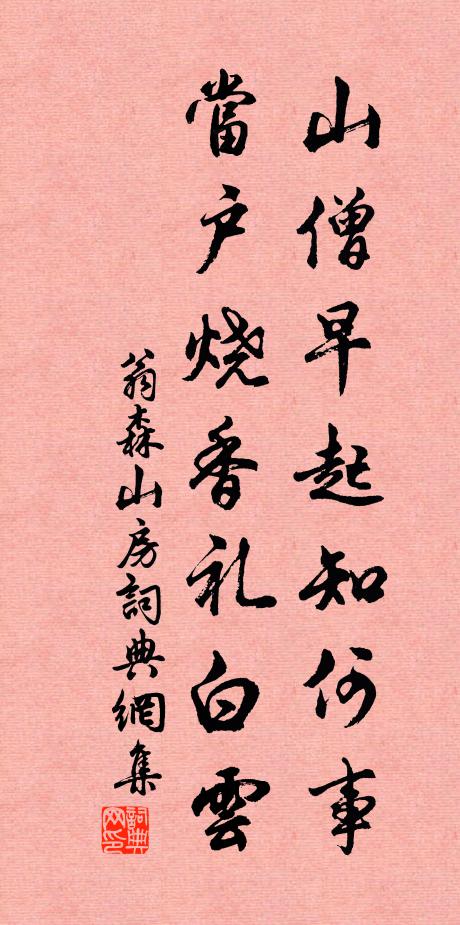 山僧早起知何事
當户烧香礼白雲
翁森山房詞典網集
詞典网印